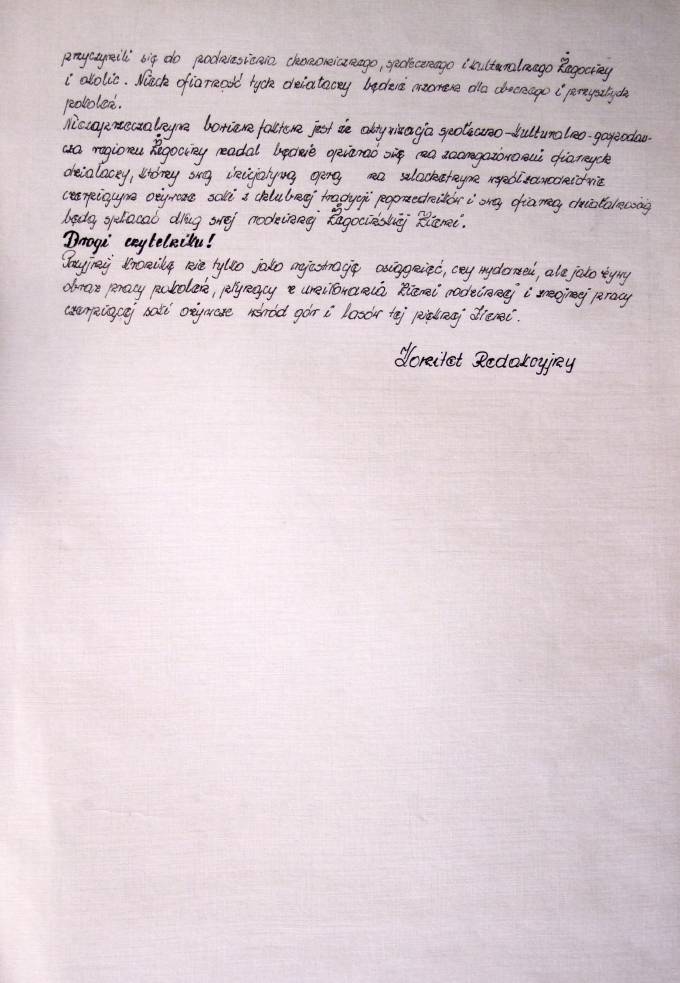 przyczynili się do podniesienia ekonomicznego, społecznego i kulturalnego Żegociny
i okolic. Niech ofiarność tych działaczy będzie wzorem dla obecnego i przyszłych
pokoleń.
Niezaprzeczalnym bowiem faktem jest że aktywizacja społeczno-kulturalno-gospodar-
cza regionu Żegociny nadal będzie opierać się na zaangażowaniu ofiarnych
działaczy, którzy swą inicjatywą oprą na szlachetnym współzawodnictwie
czerpiącym ożywcze soki z chlubnej tradycji poprzedników i swą ofiarną działalnością
będą spłacać dług swej rodzinnej Żegocińskiej Ziemi.
Drogi czytelniku!
Przyjmij kronikę nie tylko jako rejestrację osiągnięć, czy wydarzeń, ale jako żywy
obraz pracy pokoleń, płynący z umiłowania Ziemi rodzinnej i znojnej pracy
czerpiącej soki ożywcze wśród gór i lasów tej pięknej Ziemi.
Komitet Redakcyjny